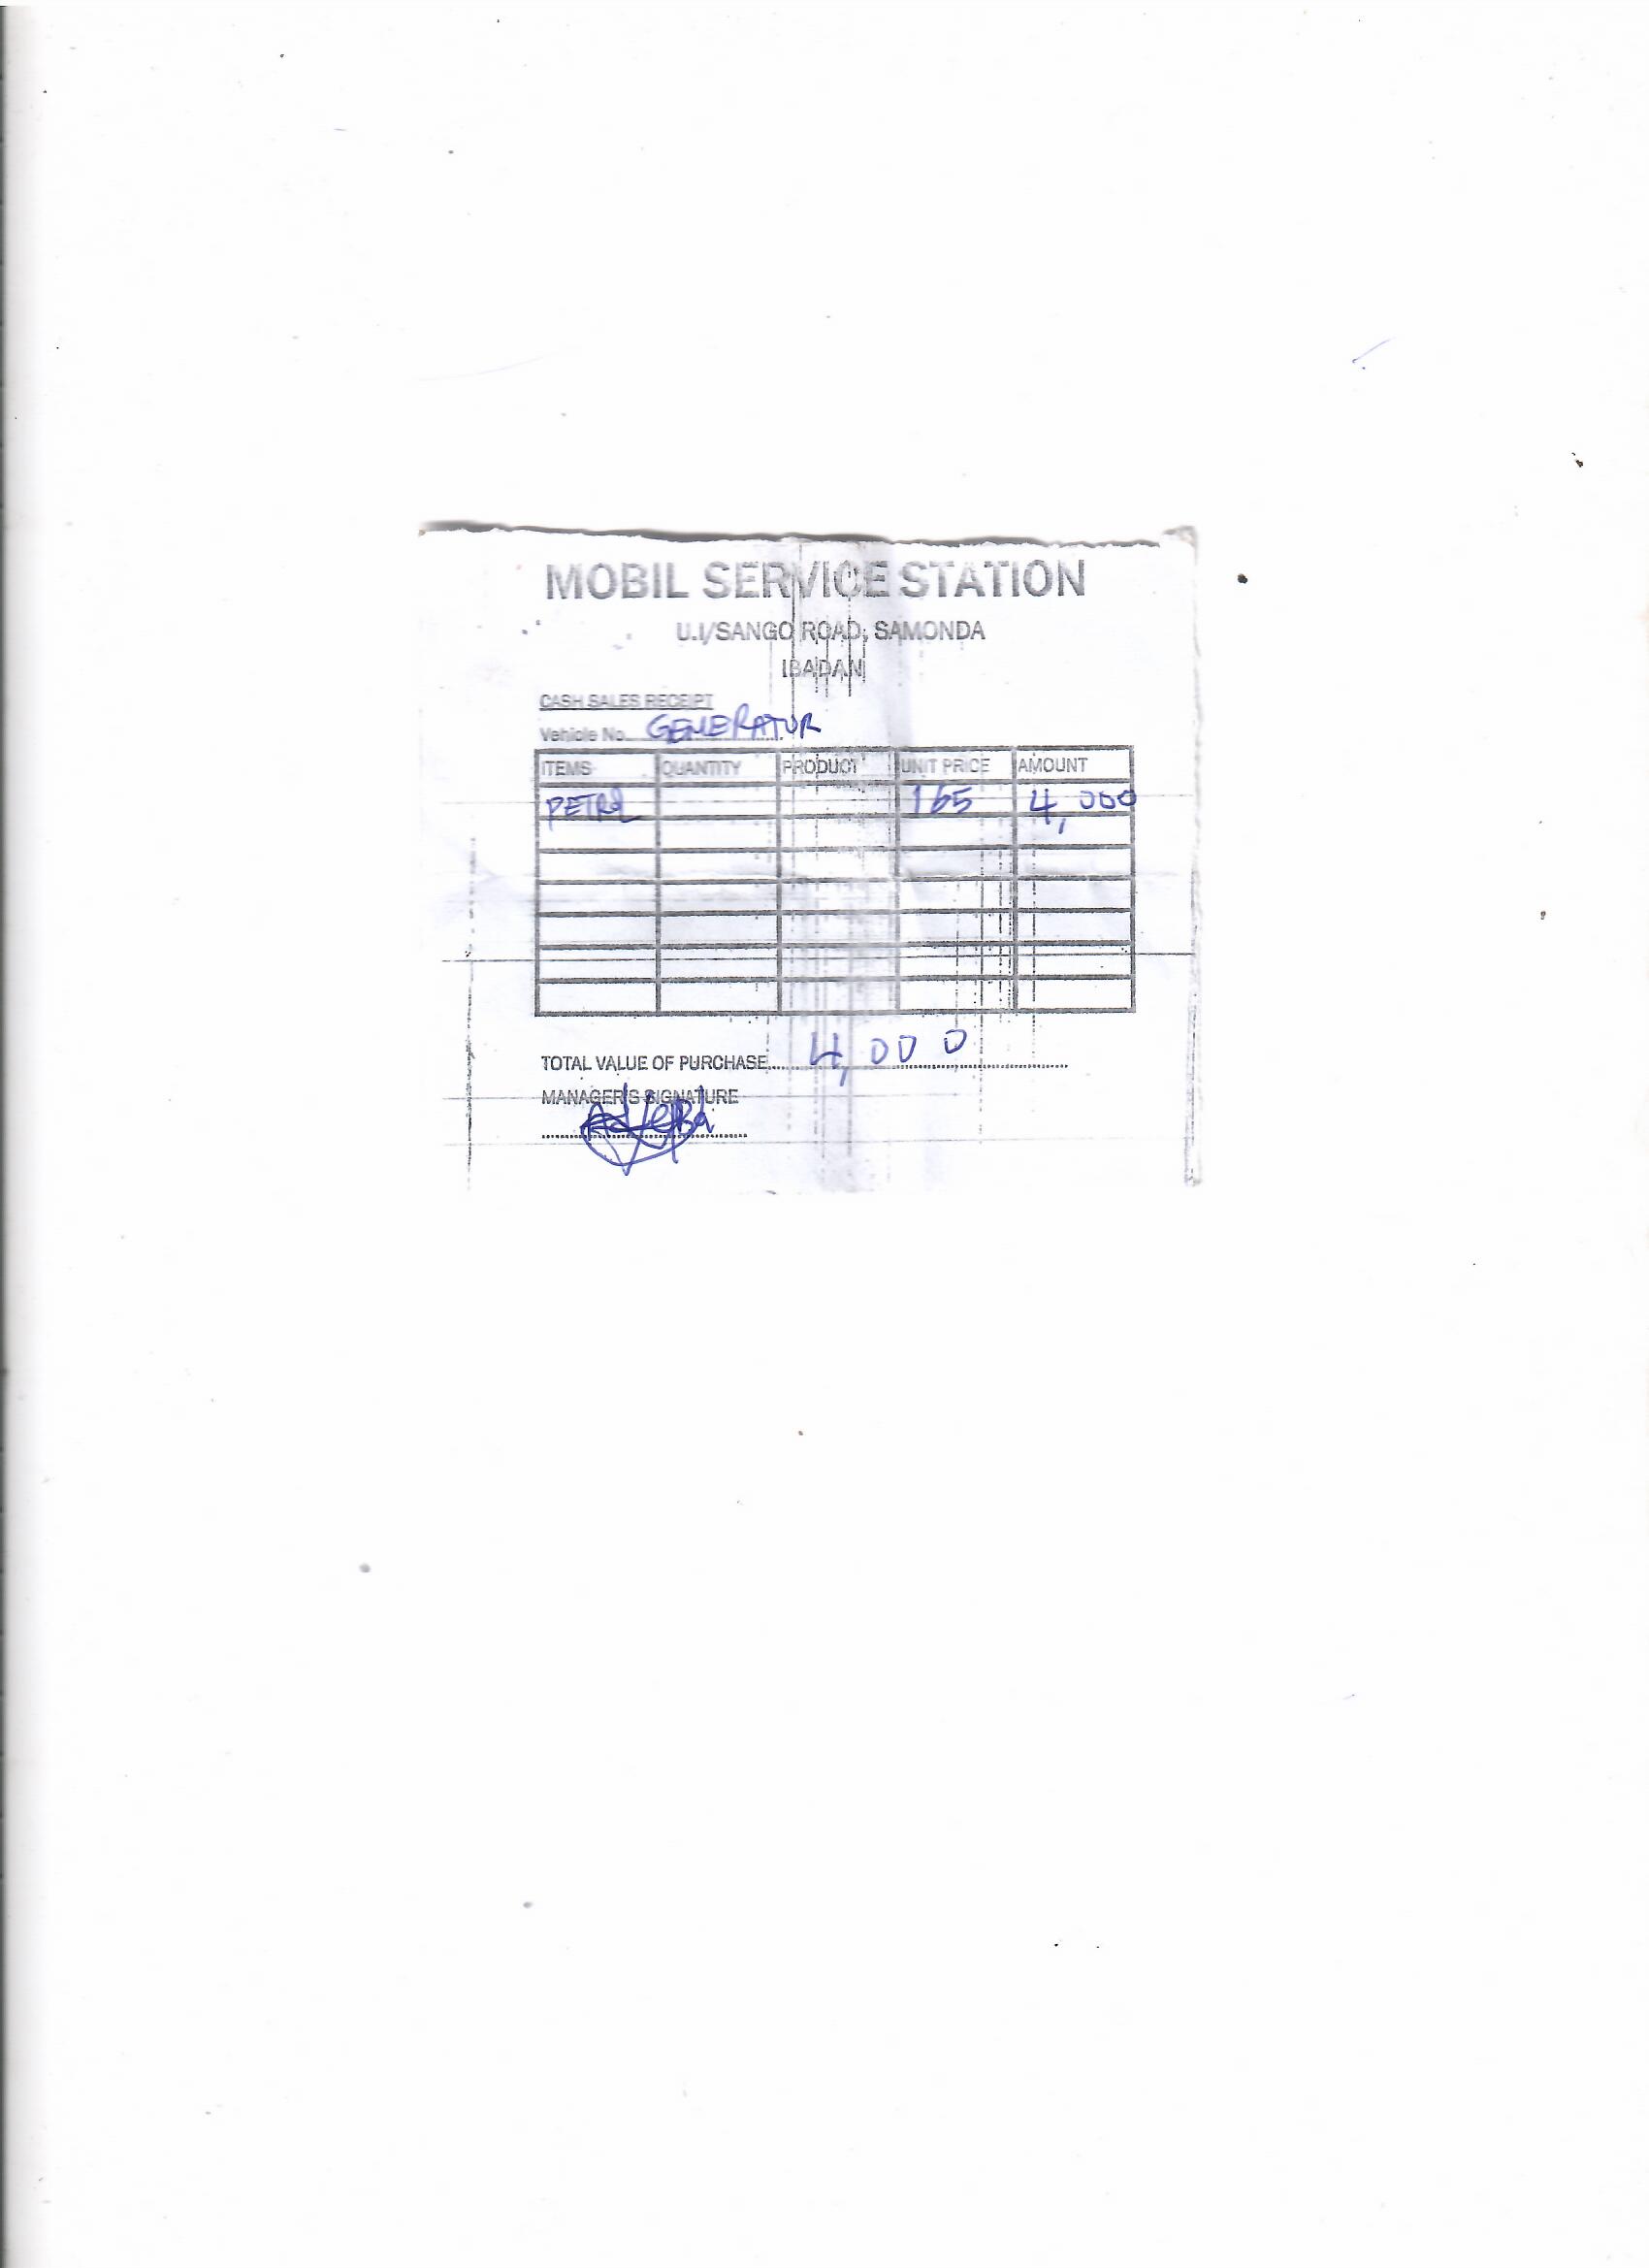 MOBIL SERVICE STATION
U.I/SANGO ROAD, SAMONDA
IBADAN
CASH SALES RECEIPT
Vehicle No. GENERATOR
ITEMS QUANTITY PRODUCT UNIT PRICE AMOUNT
PETROL 165 4,000
TOTAL VALUE OF PURCHASE 4,000
MANAGER'S SIGNATURE